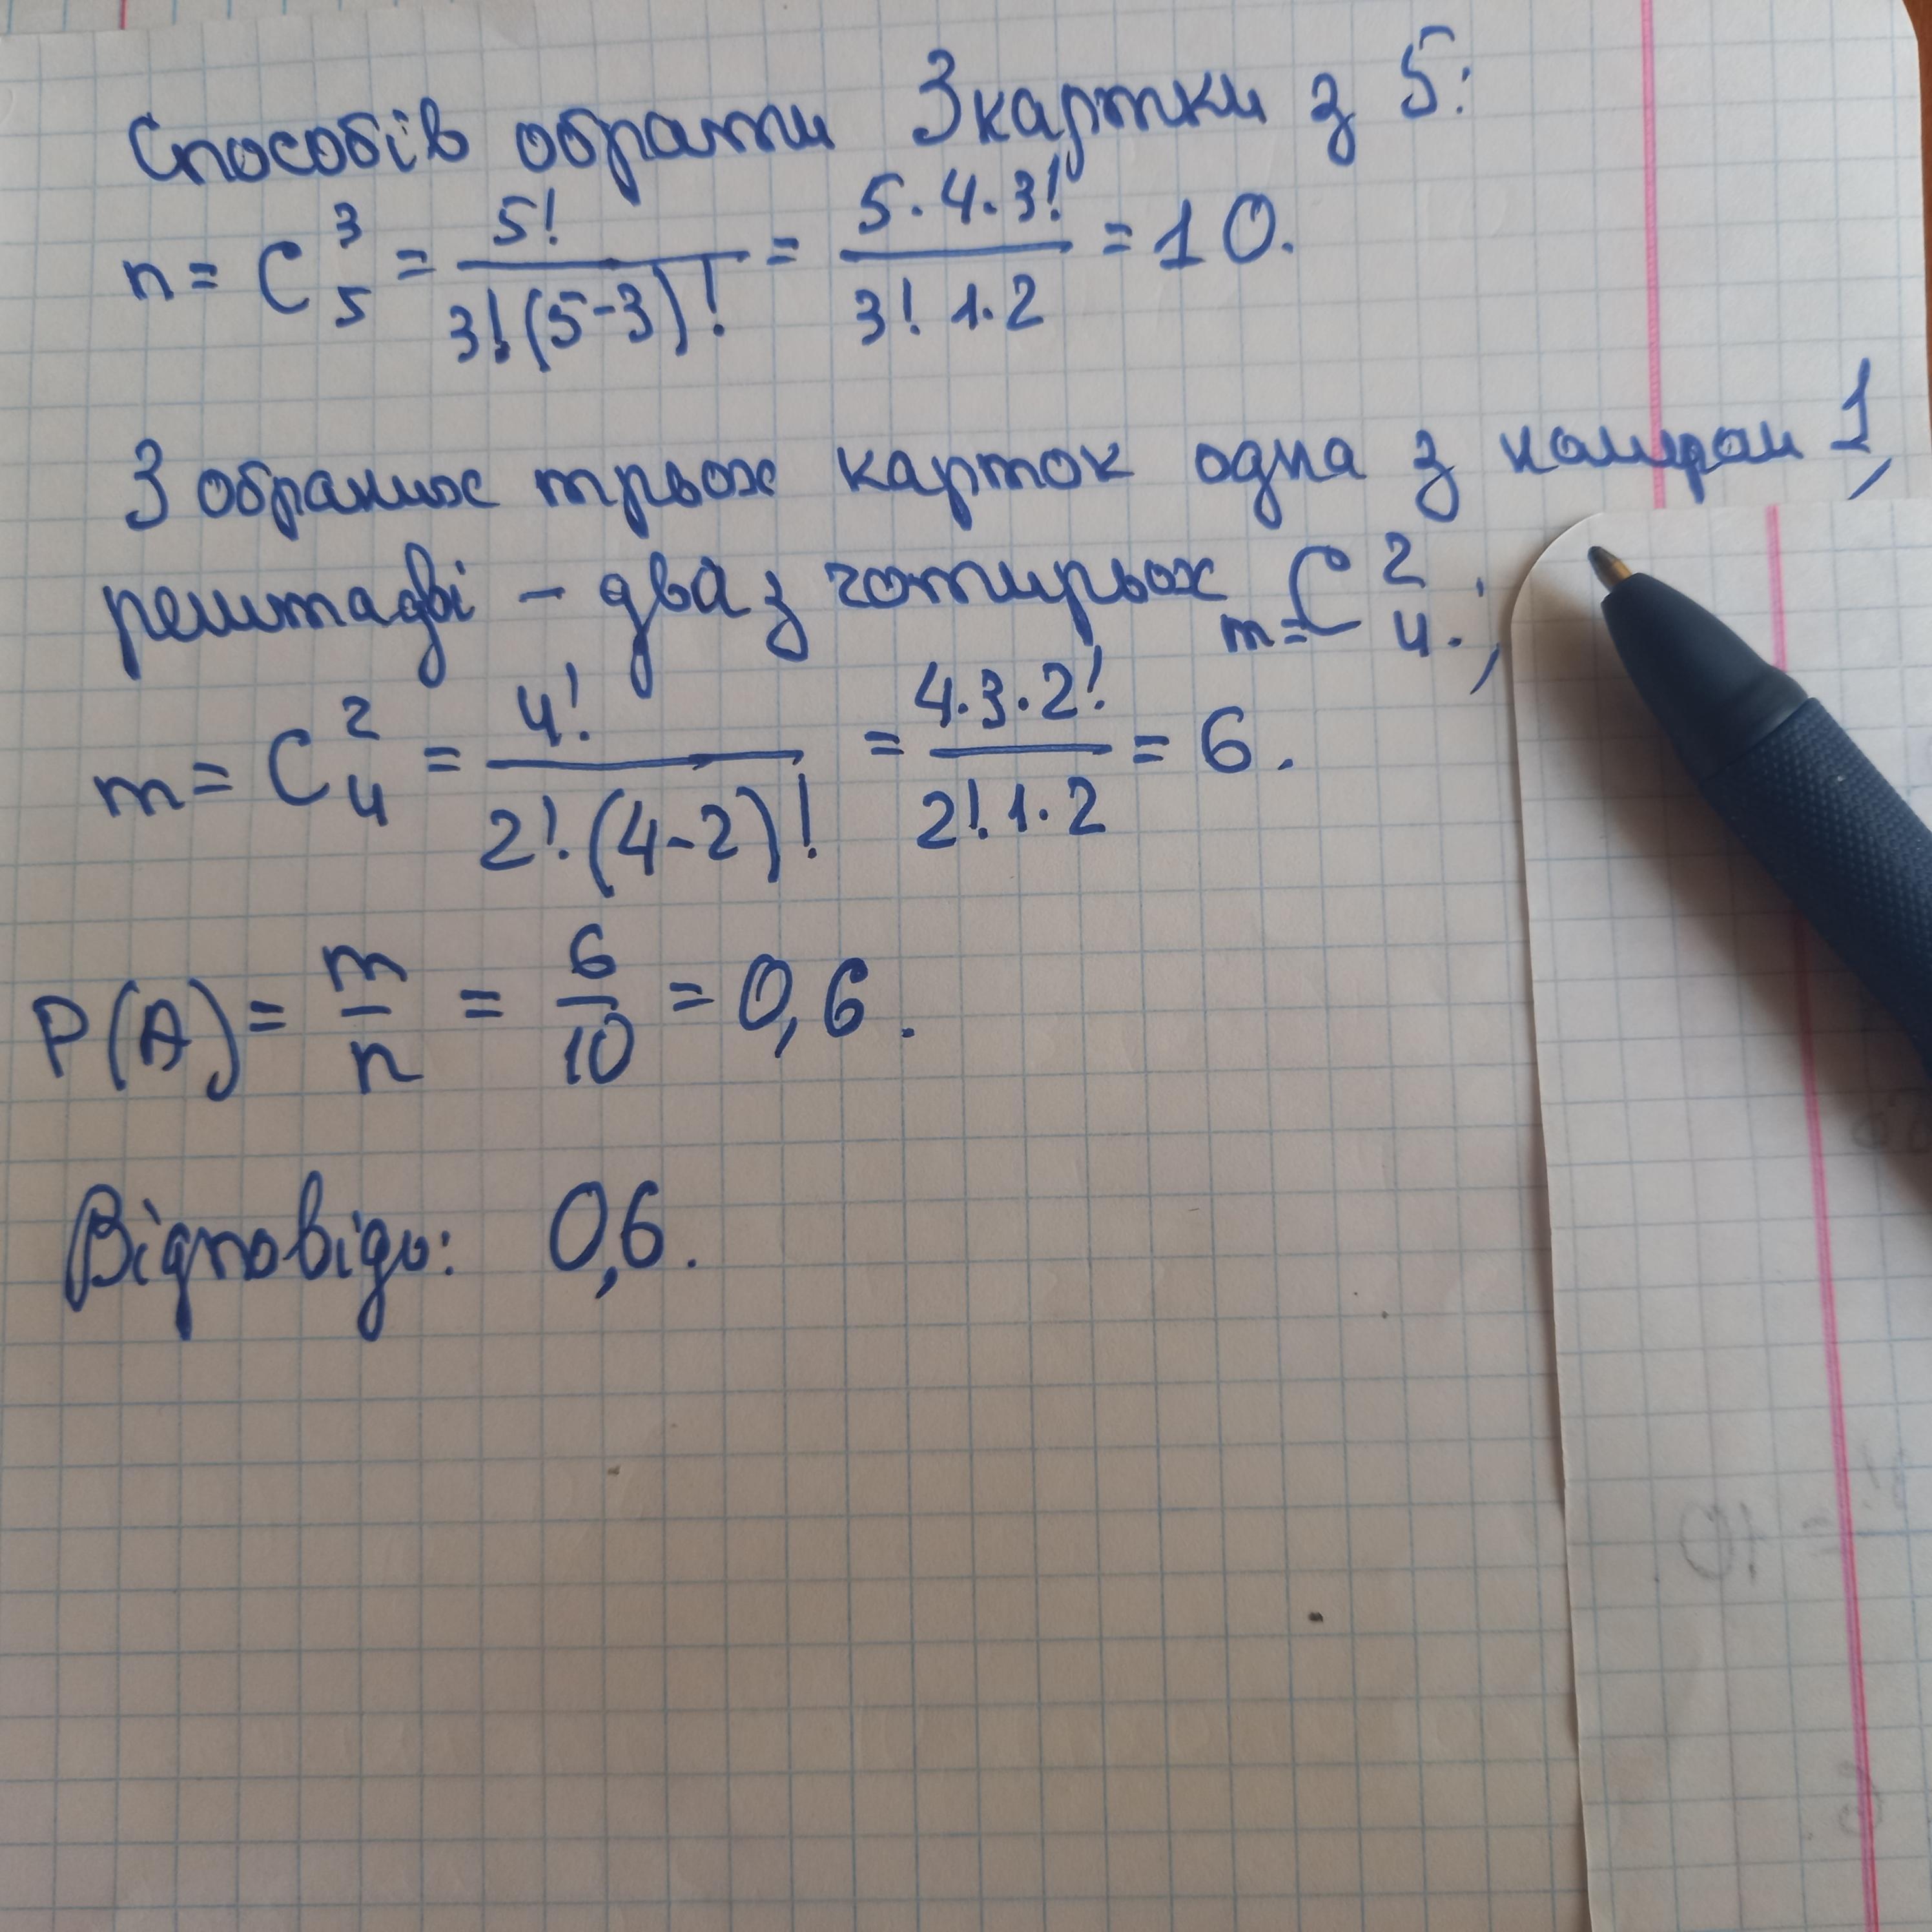 Способів обрати 3 картки з 5:
n = C_5^3 = 5!/(3!(5-3)!) = (5·4·3!)/(3! 1·2) = 10.
З обраних трьох карток одна з номером 1,
решта дві – два з чотирьох m = C_4^2.;
m = C_4^2 = 4!/(2!·(4-2)!) = (4·3·2!)/(2! 1·2) = 6.
P(A) = m/n = 6/10 = 0,6.
Відповідь: 0,6.
= 10